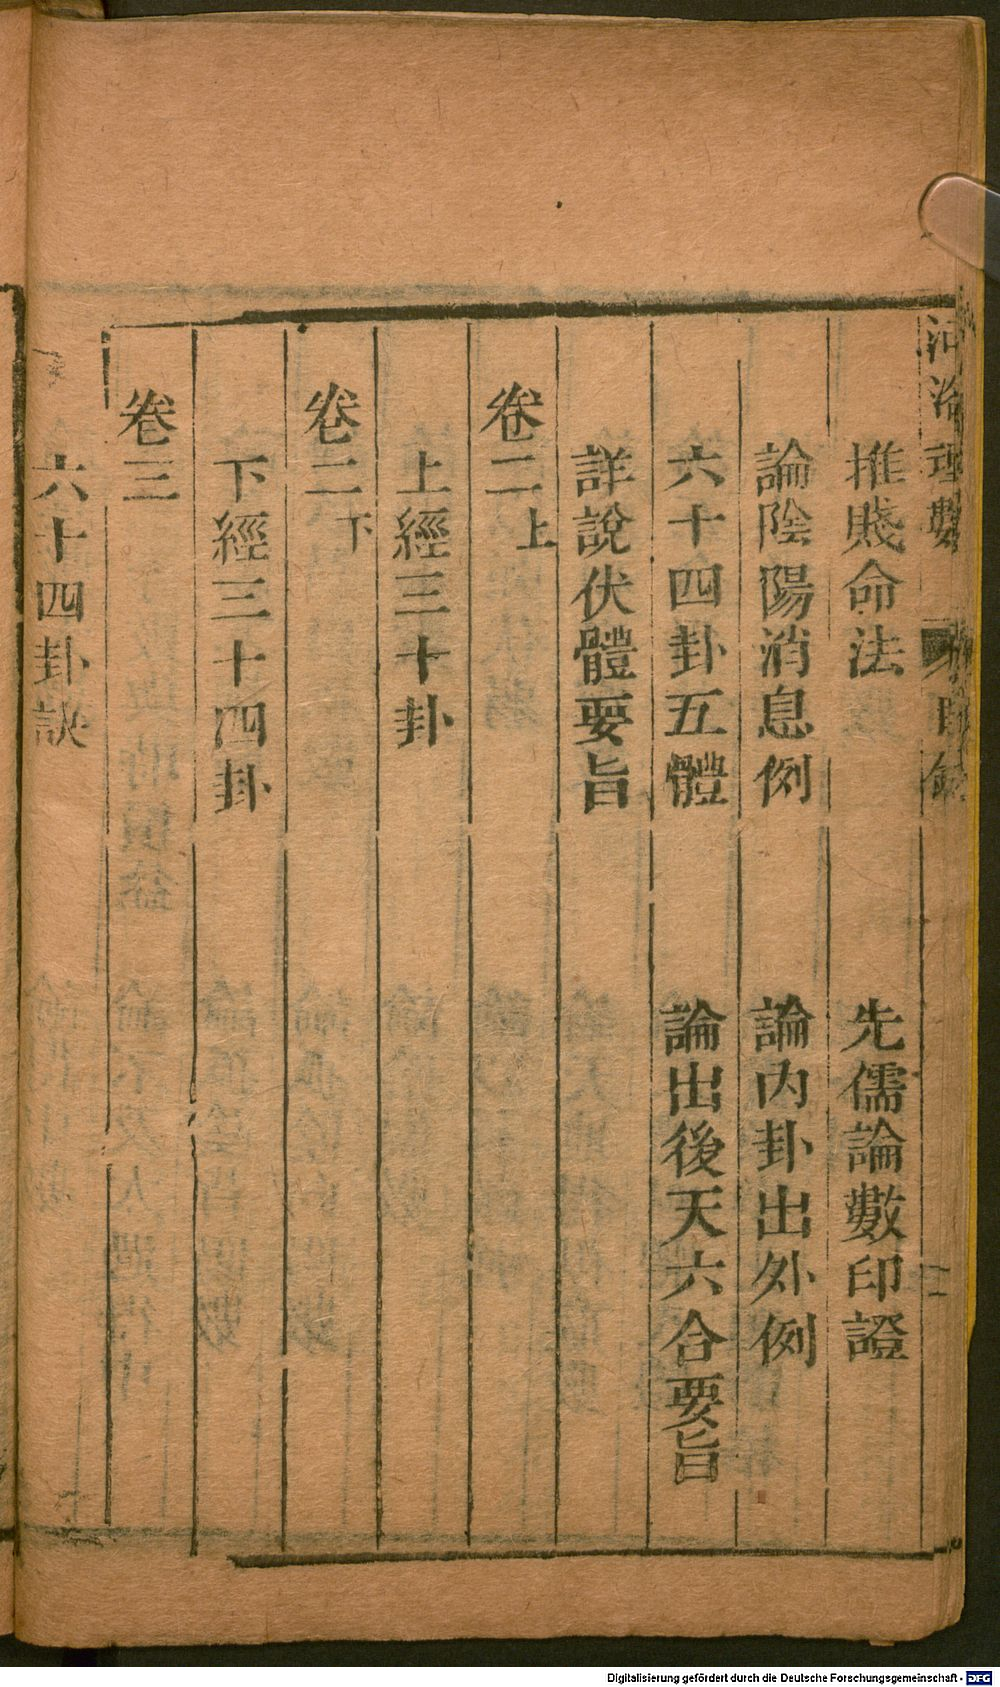 河洛理數 目錄
推賤命法 先儒論數印證
論陰陽消息例 論內卦出外例
六十四卦五體 論出後天六合要旨
詳說伏體要旨
卷二上
上經三十卦
卷二下
下經三十四卦
卷三
六十四卦訣
Digitalisierung gefördert durch die Deutsche Forschungsgemeinschaft - DFG